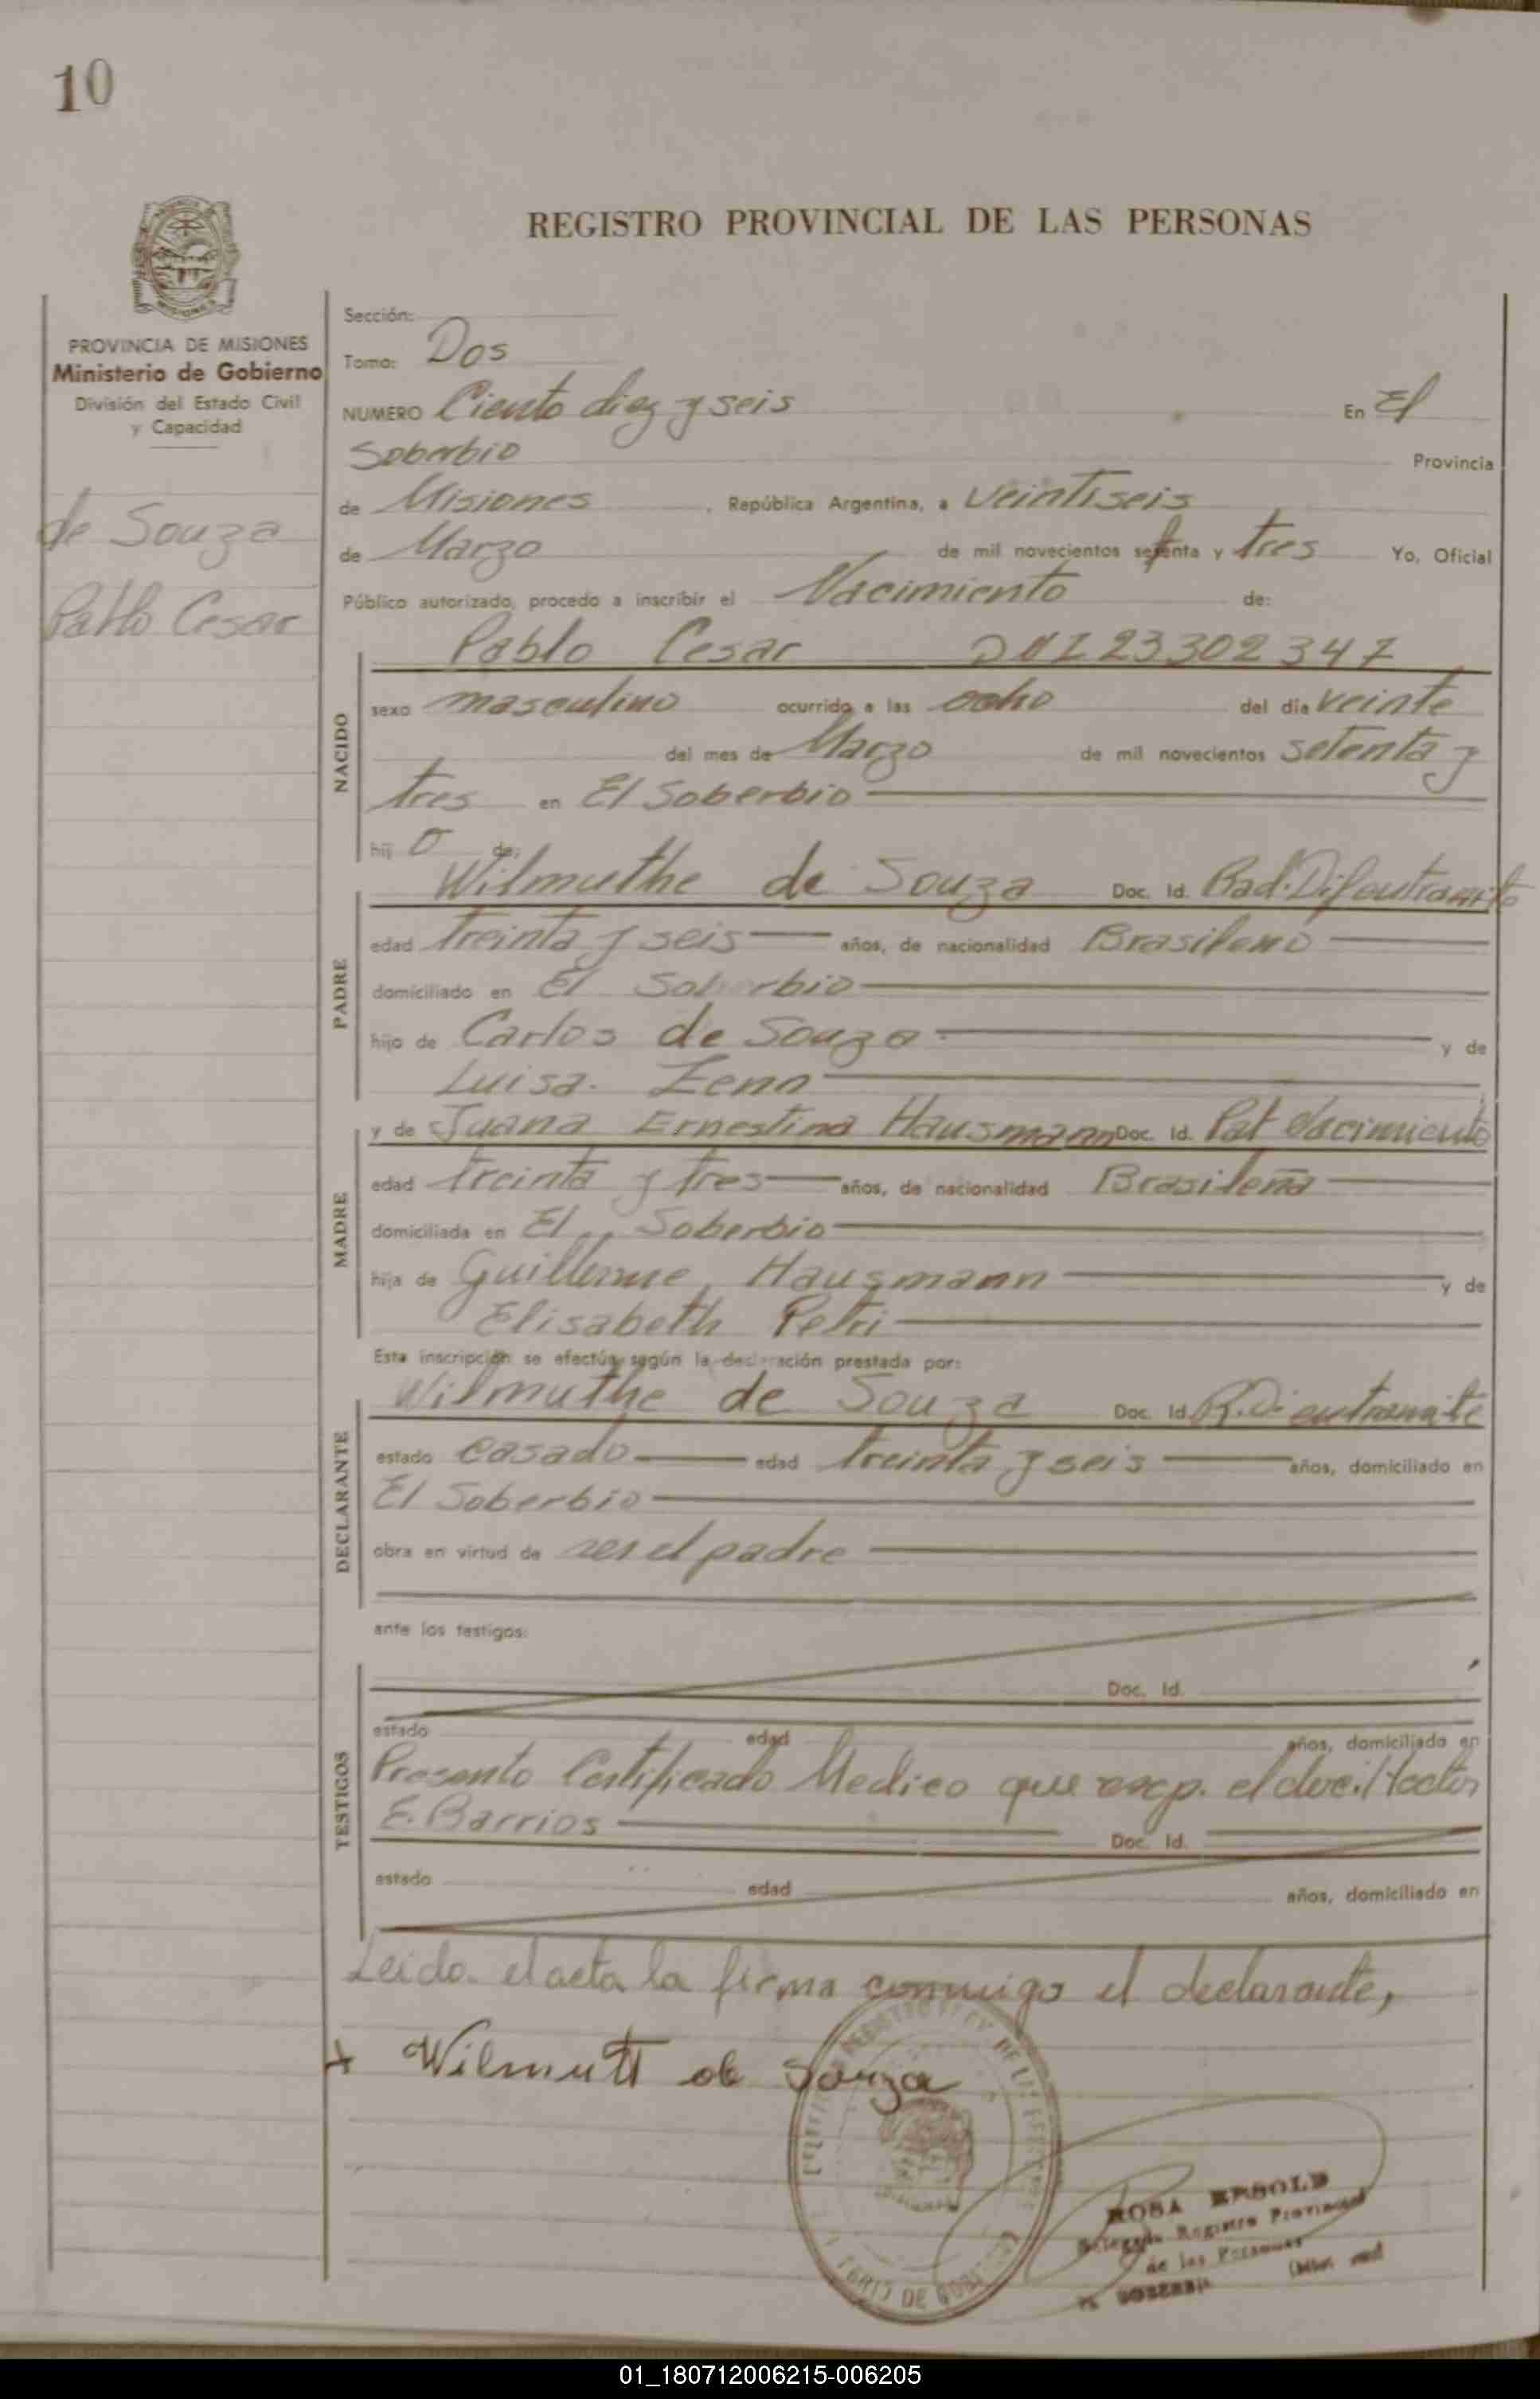 10
REGISTRO PROVINCIAL DE LAS PERSONAS
PROVINCIA DE MISIONES
Ministerio de Gobierno
División del Estado Civil
y Capacidad
de Souza
Pablo Cesar
Sección:
Tomo: Dos
NUMERO Ciento diez y seis En El
Soberbio Provincia
de Misiones, República Argentina, a veintiseis
de Marzo de mil novecientos setenta y tres Yo, Oficial
Público autorizado, procedo a inscribir el Nacimiento de:
NACIDO
Pablo Cesar DNI 23302347
sexo masculino ocurrido a las ocho del día veinte
del mes de Marzo de mil novecientos setenta y
tres en El Soberbio
hij o de:
PADRE
Wilmuthe de Souza Doc. Id. Rad. Dif en tramite
edad treinta y seis años, de nacionalidad Brasileno
domiciliado en El Soberbio
hijo de Carlos de Souza y de
Luisa. Zenn
MADRE
y de Juana Ernestina Hausmann Doc. Id. Pat Nacimiento
edad treinta y tres años, de nacionalidad Brasileña
domiciliada en El Soberbio
hija de Guillerme Hausmann y de
Elisabeth Petri
Esta inscripción se efectúa según la declaración prestada por:
DECLARANTE
Wilmuthe de Souza Doc. Id. R.D. en tramite
estado casado edad treinta y seis años, domiciliado en
El Soberbio
obra en virtud de ser el padre
ante los testigos:
TESTIGOS
Doc. Id.
estado edad años, domiciliado en
Presento Certificado Medico que exp. el doc. Hector
E. Barrios Doc. Id.
estado edad años, domiciliado en
Leido el acta la firma conmigo el declarante,
Wilmutt de Souza
ROSA
Registro Provincial
de las Personas
01_180712006215-006205